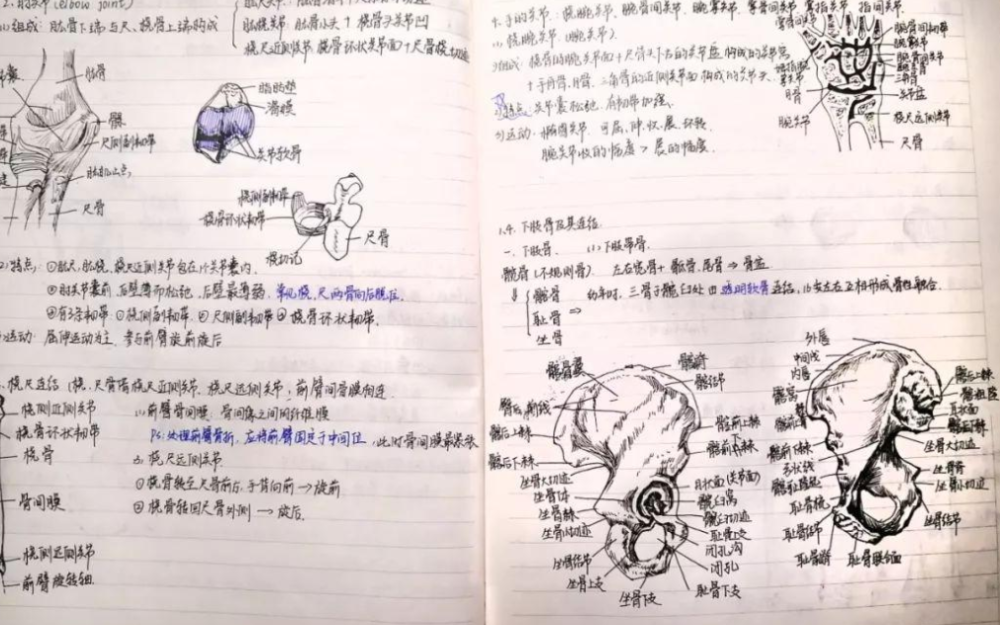 2.肘关节(elbow joint)
(1)组成:肱骨下端与尺、桡骨上端构成
肱桡关节 肱骨小头+桡骨头关节凹
桡尺近侧关节 桡骨环状关节面+尺骨桡切迹
肱骨
尺侧副韧带
尺骨
脂肪垫
滑膜
关节软骨
桡侧副韧带
桡骨环状韧带
桡切迹
尺骨
(2)特点:①肱尺、肱桡、桡尺近侧关节包在1个关节囊内.
②肘关节囊前、后壁薄而松弛,后壁最薄弱,常见桡、尺两骨向后脱位.
③有3条韧带:①桡侧副韧带.②尺侧副韧带③桡骨环状韧带.
运动:屈伸运动为主,参与前臂旋前旋后
桡尺连结(桡、尺骨借桡尺近侧关节、桡尺远侧关节,前臂间骨膜相连
桡尺近侧关节
桡骨环状韧带
桡骨
骨间膜
桡尺远侧关节
前臂旋转轴
1.前臂骨间膜:骨间缘之间的纤维膜
Ps:处理前臂骨折,应将前臂固定于中间位,此时骨间膜最紧张
2.桡尺远侧关节.
①桡骨转至尺骨前后,手背向前→旋前
②桡骨转回尺骨外侧→旋后.
4.手的关节:桡腕关节、腕骨间关节、腕掌关节、掌骨间关节、掌指关节、指间关节.
(1)桡腕关节(腕关节).
组成:桡骨的腕关节面+尺骨头下方的关节盘 构成的关节窝
+手舟骨、月骨、三角骨的近侧关节面构成的关节头.
特点:关节囊松弛,有韧带加强.
运动:椭圆关节 可屈,伸,收,展,环转
腕关节收的幅度>展的幅度.
月骨
腕关节
腕骨间韧带
腕掌关节
腕骨间关节
三角骨
关节盘
桡尺远侧关节
尺骨
1.4.下肢骨及其连结
一、下肢骨. (1)下肢带骨.
髋骨(不规则骨). 左右髋骨+骶骨、尾骨⇒骨盆
髂骨
耻骨
坐骨
幼年时,三骨于髋臼处由透明软骨连结,16岁左右互相形成骨性融合.
髂骨翼
髂嵴
髂结节
臀后线
髂后上棘
髂后下棘
坐骨大切迹
坐骨体
坐骨棘
坐骨小切迹
坐骨结节
坐骨上支
坐骨下支
髂前上棘
髂前下棘
月状面(关节面)
髋臼窝
髋臼切迹
耻骨上支
闭孔沟
闭孔
耻骨下支
外唇
中间线
内唇
髂窝
髂前上棘
髂前下棘
弓状线
髂耻隆起
耻骨梳
耻骨结节
耻骨嵴
耻骨联合面
髂后上棘
髂粗隆
耳状面
髂后下棘
坐骨大切迹
坐骨棘
坐骨小切迹
坐骨结节